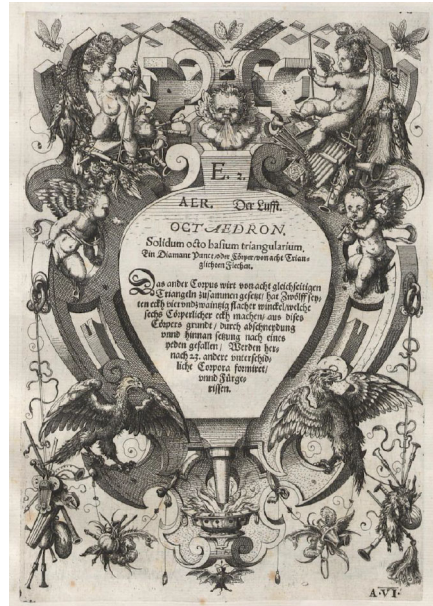 E. 2.
AER. Der Lufft.
OCTAEDRON.
Solidum octo basium triangularium,
Ein Diamant Punct, oder Cörper von acht Trian-
glichten Flechen.
Das ander Corpus wirt von acht gleichseitigen
Triangeln zusammen gesetzt/ hat Zwölff sey-
ten eckh vierundzwaintzig flacher winckel/ welche
sechs Cörperlicher eckh machen/ aus dises
Cörpers grundt/ durch abschneydung
unnd hinnan setzung nach eines
yeden gefallen/ Werden her-
nach 23. andere unterschid-
liche Corpora formiret/
unnd Fürge-
rissen.
A·VI·